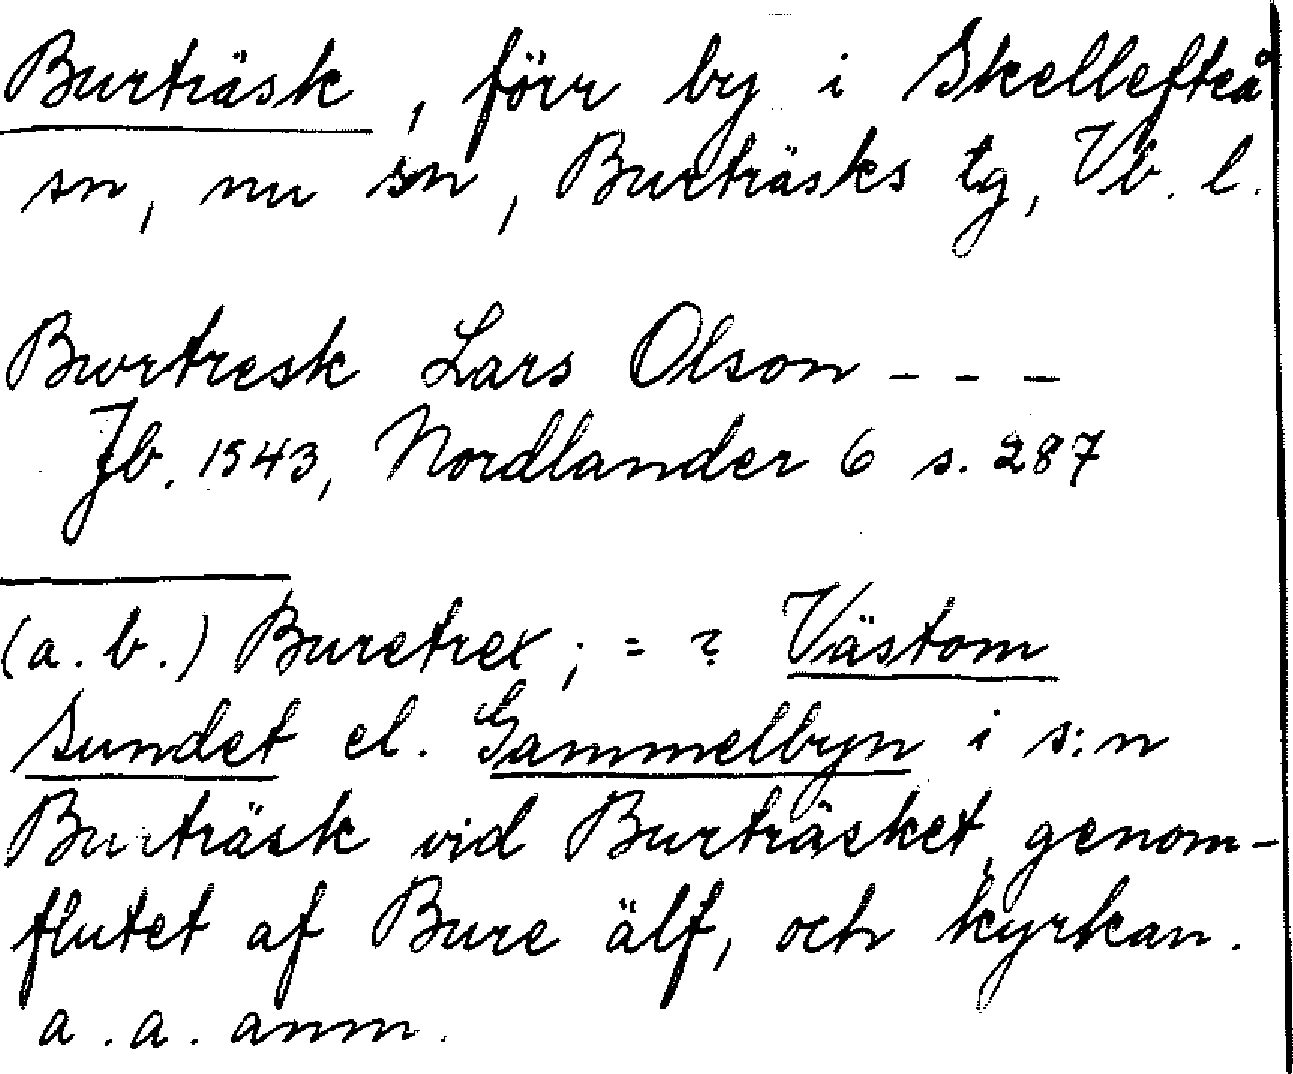 Burträsk, förr by i Skellefteå
sn, nu sn, Burträsks tg, Vb. l.
Burtresk Lars Olson - - -
Jb. 1543, Nordlander 6 s. 287
(a. b.) Buretrex; = ? Västom
Sundet el. Gammelbyn i s:n
Burträsk vid Burträsket, genom-
flutet af Bure älf, och kyrkan.
a. a. anm.